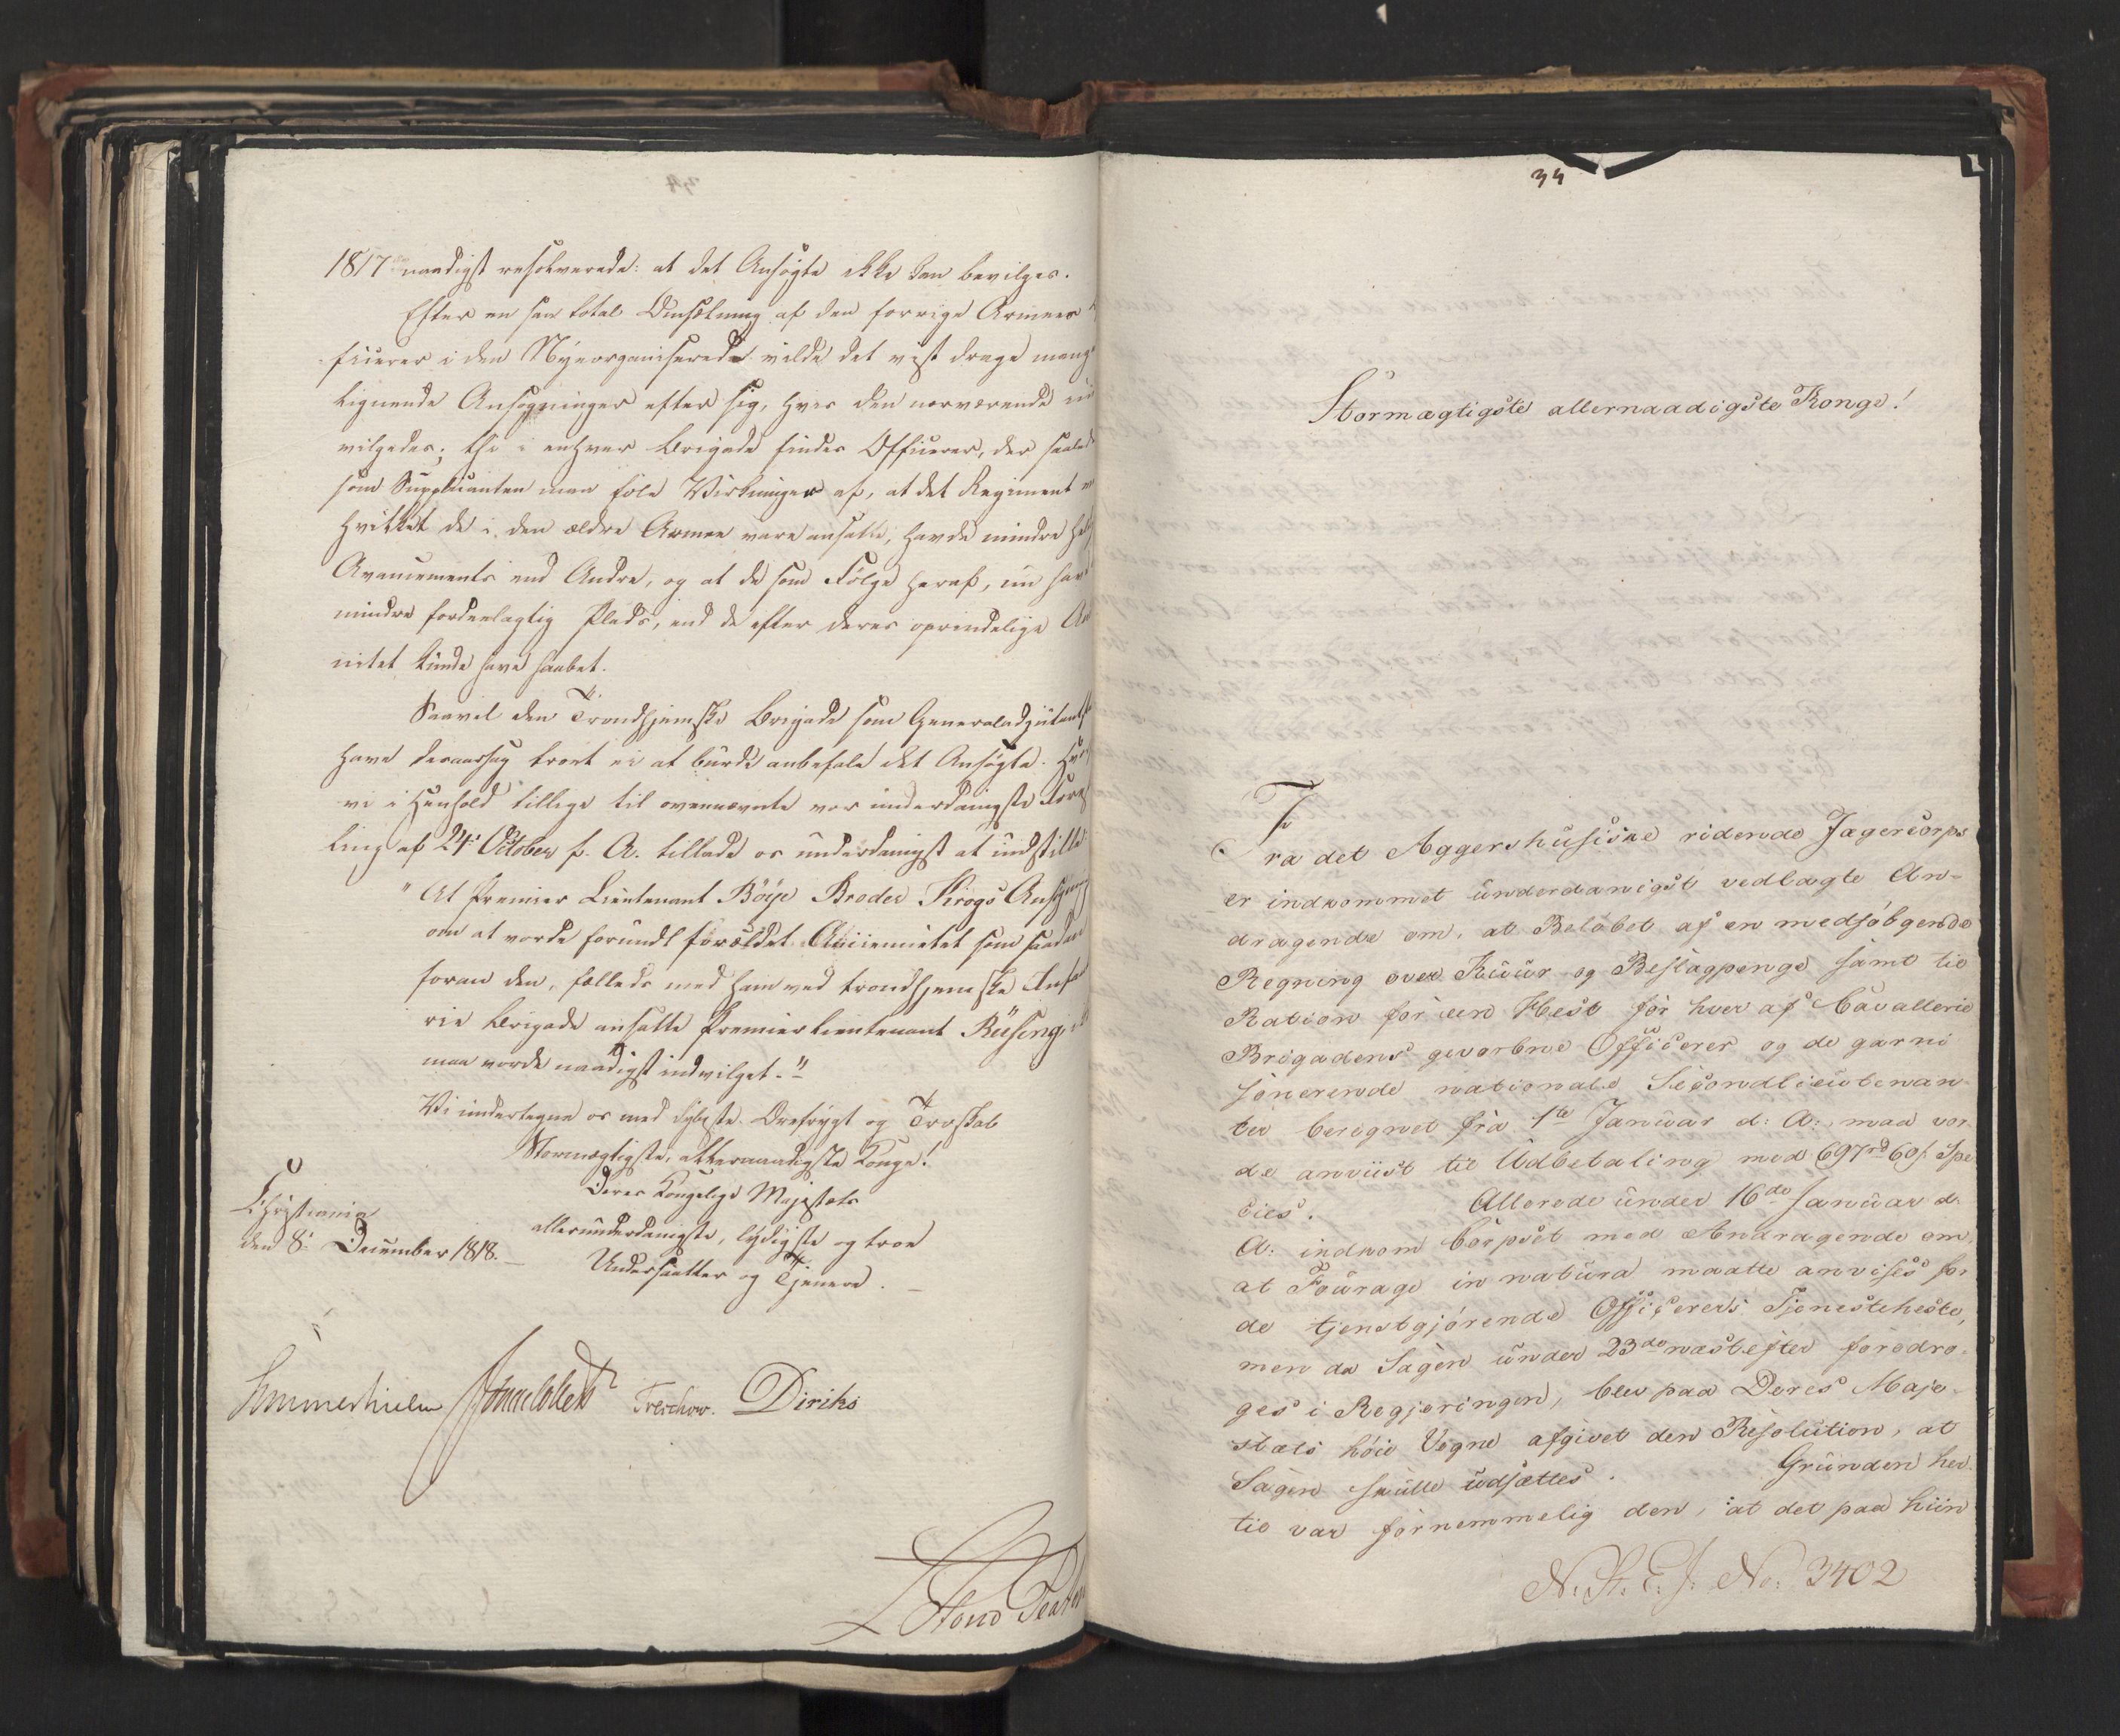 1817 naadigst resolverede: at det Ansøgte ikke kan bevilges.
Efter en saa total Omsætning af den forrige Armees
ficierer i den Nyeorganiserede vilde det vist drage mange
lignende Ansøgninger efter sig, hvis den nærværende
vilgedes; thi i enhver Brigade findes Officierer, der
som Supplicanten maa føle Virkninger af, at det Regiment
hvilket de i den ældre Armee vare ansatte, havde mindre
Avancements end Andre, og at de som Følge heraf, nu
mindre fordeelagtig Plads, end de efter deres oprindelige
nitet kunde have haabet.
Saavel den Trondhjemske Brigade som Generaladjutant
have desaarsag troet ei at burde anbefale det Ansøgte.
vi i Henhold tillige til ovennævnte vor underdanigste
ling af 24: October f. A. tillade os underdanigst at indstille
"At Premier Lieutenant Böije Broder Krogs
om at vorde forundt forældet Anciennitet som
foran den, fælleds med ham ved trondhjemske
rie Brigade ansatte Premierlieutenant Büsing,
maa vorde naadigst indvilget."
Vi undertegne os med dybeste Ærefrygt og Troskab
Stormægtigste, allernaadigste Konge!
Deres Kongelige Majestæts
allerunderdanigste, lydigste og troe
Undersaatter og Tjenere.
Christiania
den 8: December 1818.
Sommerhielm Jonas Collett Treschow. Diriks
34
Stormægtigste allernaadigste Konge!
Fra det Aggershusiske ridende Jægercorps
er indkommet underdanigst vedlagte An-
dragende om, at Beløbet af en medfølgende
Regning over Kuur og Beslagpenge samt til
Ration for een Hest for hver af Cavallerie
Brigadens gevorbne Officerer og de garni
sonerende nationale Secondlieutenan
ter beregnet fra 1te Januar d: A:, maa vor
de anviist til Udbetaling med 697rd 60s. Spe
cies. Allerede under 16de Januar d.
A: indkom Corpset med Andragende om,
at Fourage in natura maatte anvises for
de tjenstgjørende Officerers Tjenesteheste,
men da Sagen under 23de næstefter foredro-
ges i Regjeringen, blev paa Deres Maje-
stæts høie Vegne afgivet den Resolution, at
Sagen skulle udsættes. Grunden her
til var fornemmelig den, at det paa hiin
N. St. C. J. No: 3402